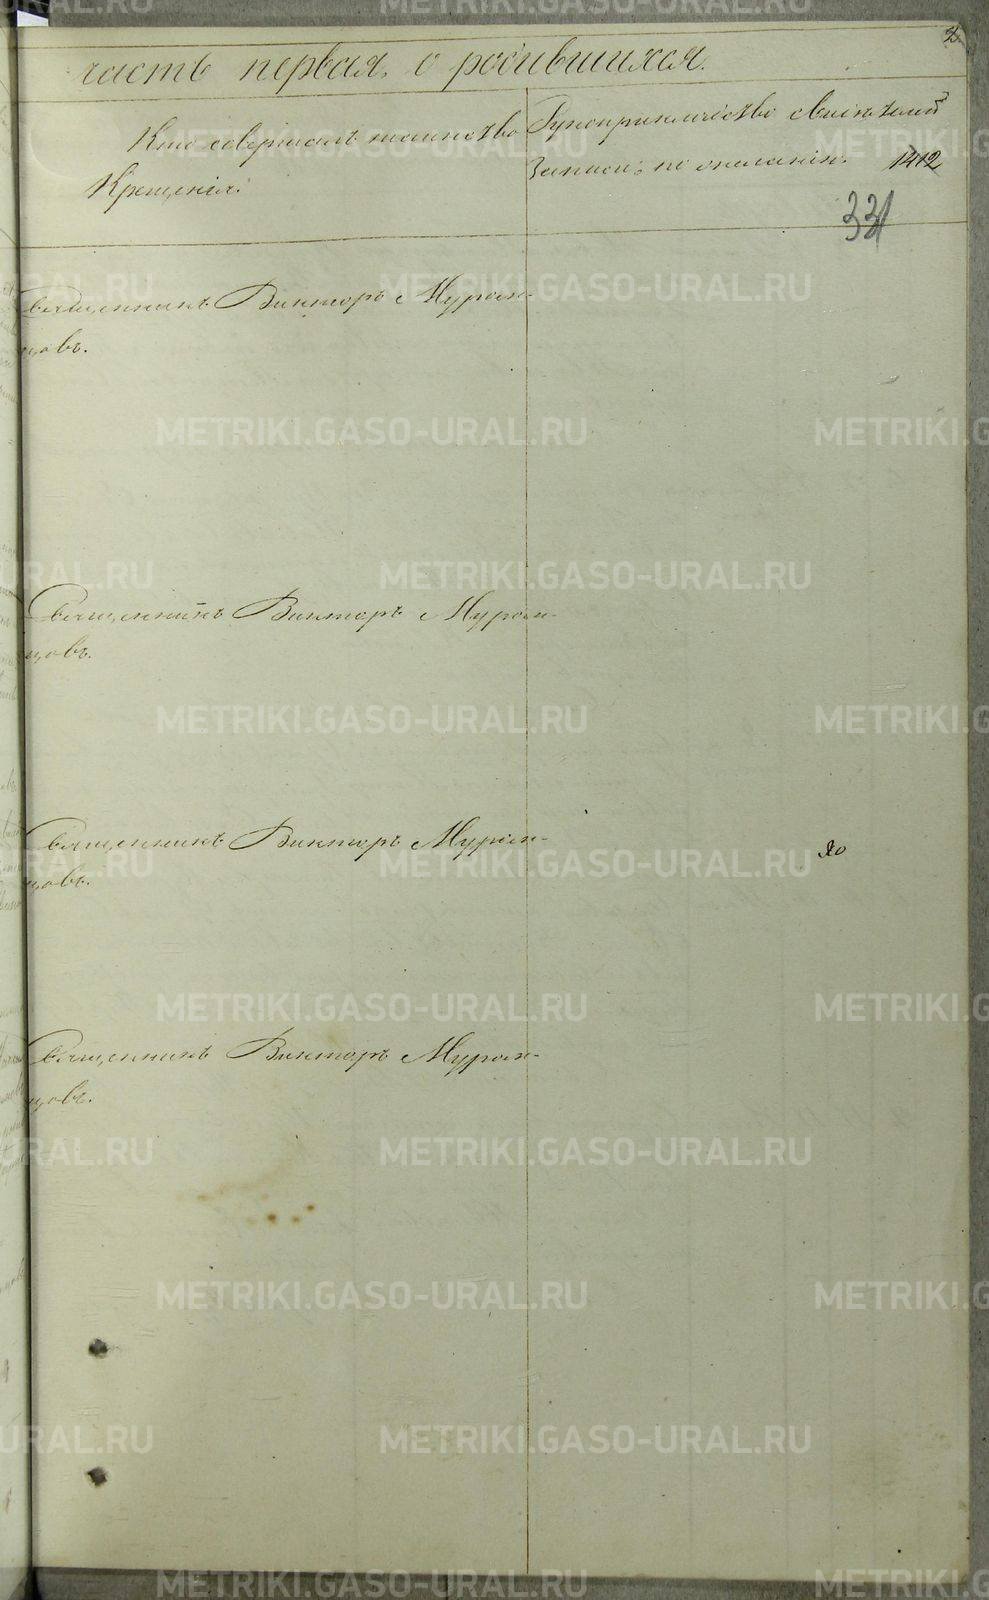 2
часть первая, о родившихся.
Кто совершалъ таинство
Крещенія.
Рукоприкладство свидѣтелей
Записи по желанію.
1412
331
Священникъ Викторъ Муром-
цовъ.
Священникъ Викторъ Муром-
цовъ.
Священникъ Викторъ Муром-
цовъ.
Священникъ Викторъ Муром-
цовъ.
METRIKI.GASO-URAL.RU